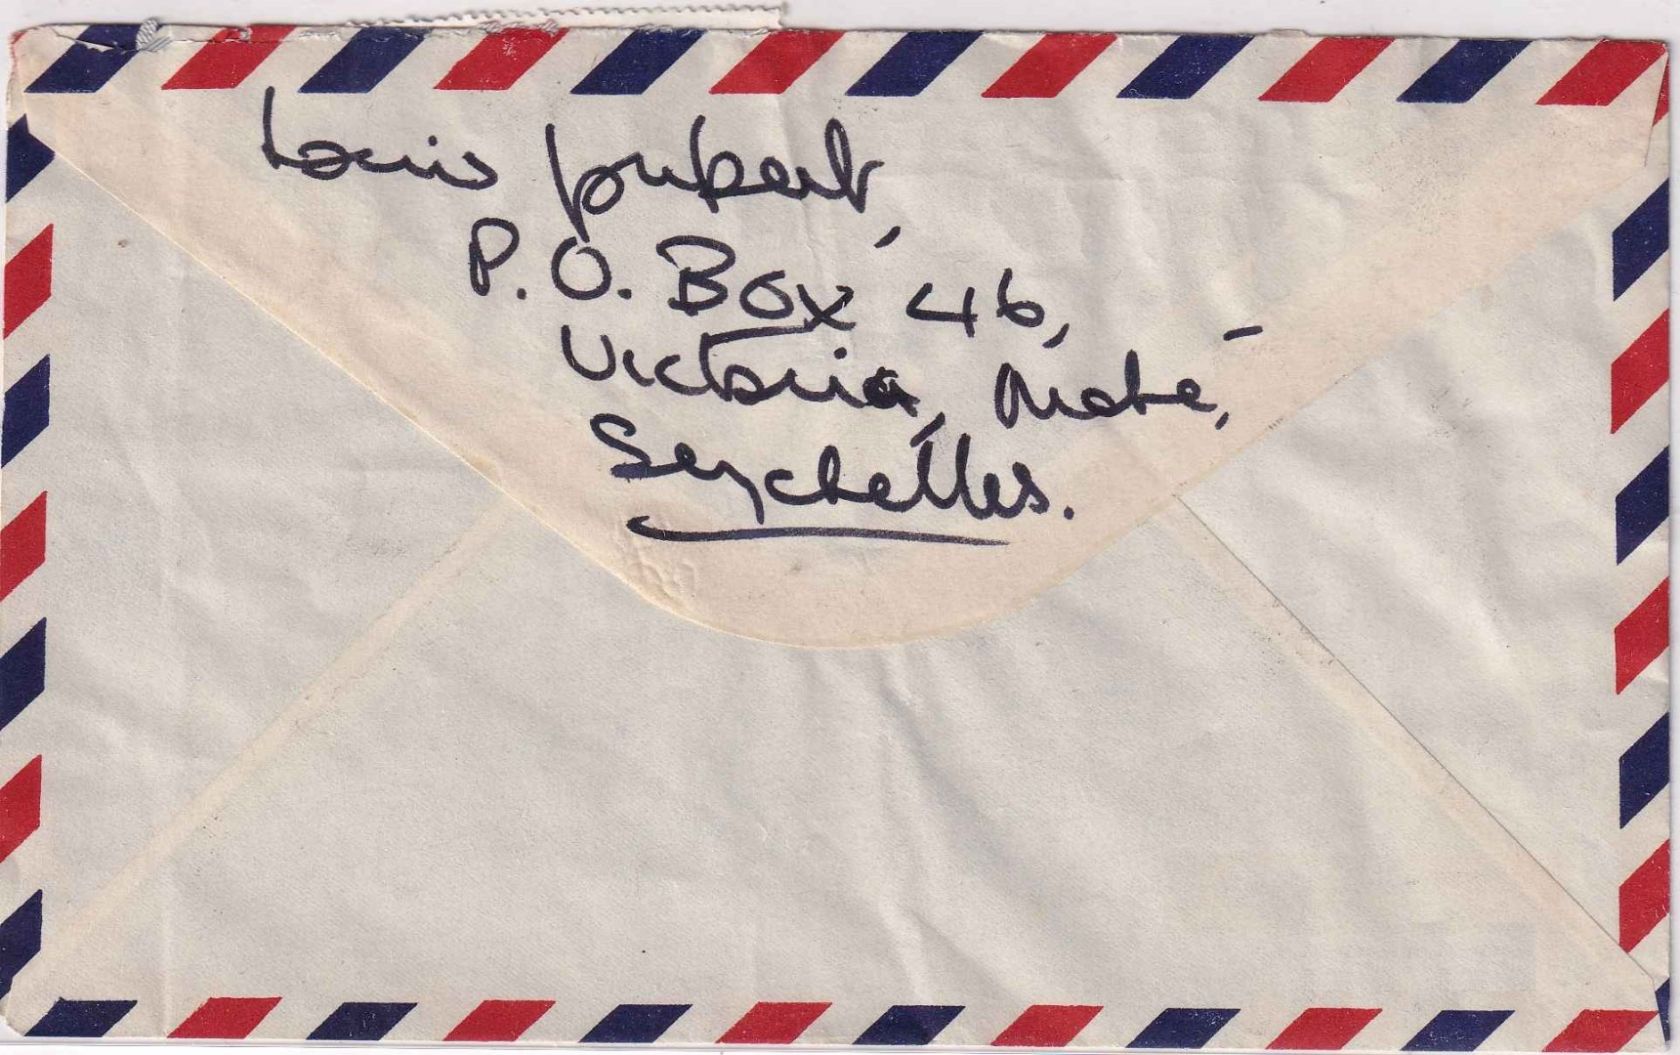 Louis Joubert,
P.O. Box 46,
Victoria, Mahé,
Seychelles.